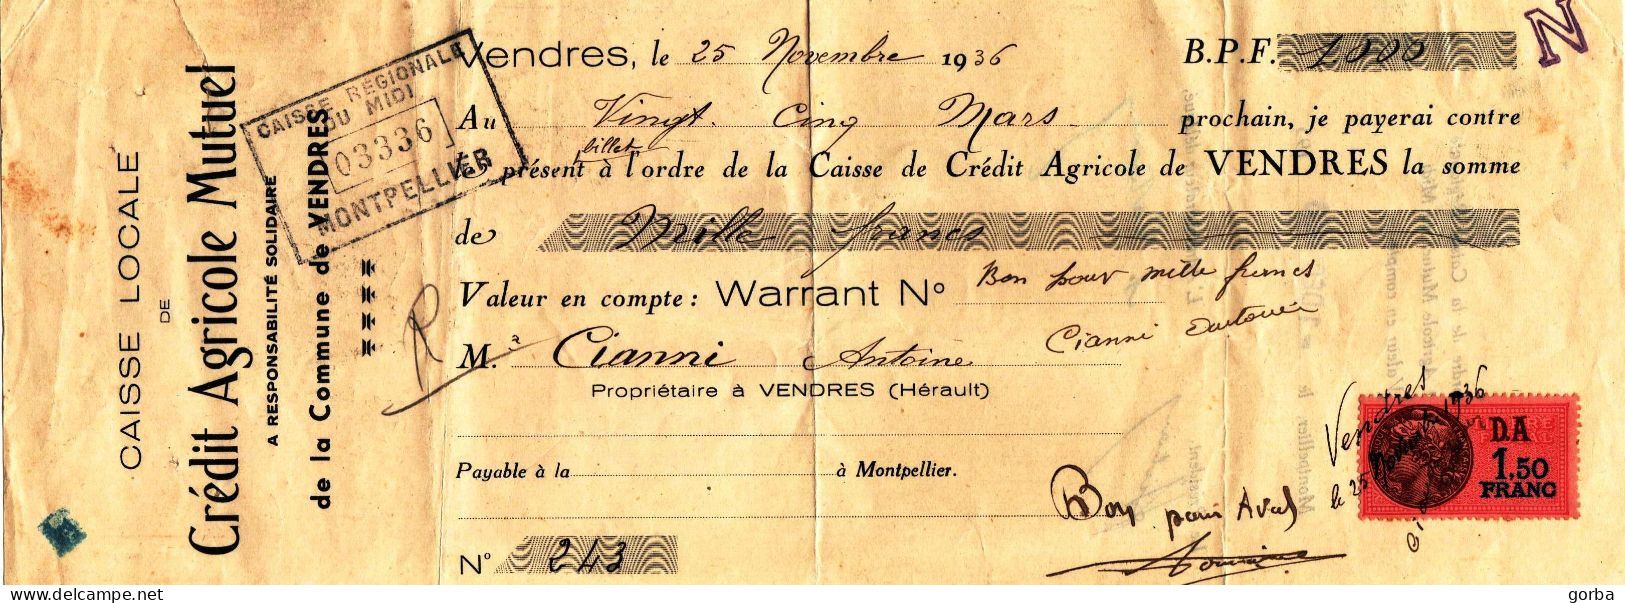 CAISSE LOCALE
DE
Crédit Agricole Mutuel
A RESPONSABILITÉ SOLIDAIRE
de la Commune de VENDRES
CAISSE RÉGIONALE
DU MIDI
03336
MONTPELLIER
Vendres, le 25 Novembre 1936 B.P.F. 1000
N
Au Vingt Cinq Mars prochain, je payerai contre
billet
le présent à l'ordre de la Caisse de Crédit Agricole de VENDRES la somme
de Mille francs
Valeur en compte : Warrant N° Bon pour mille francs
M. Cianni Antoine Cianni Antoine
Propriétaire à VENDRES (Hérault)
Payable à la à Montpellier.
Bon pour Aval
Vendres
le 25 Novembre 1936
D.A
1,50
FRANC
N° 243
delcampe.net
gorba